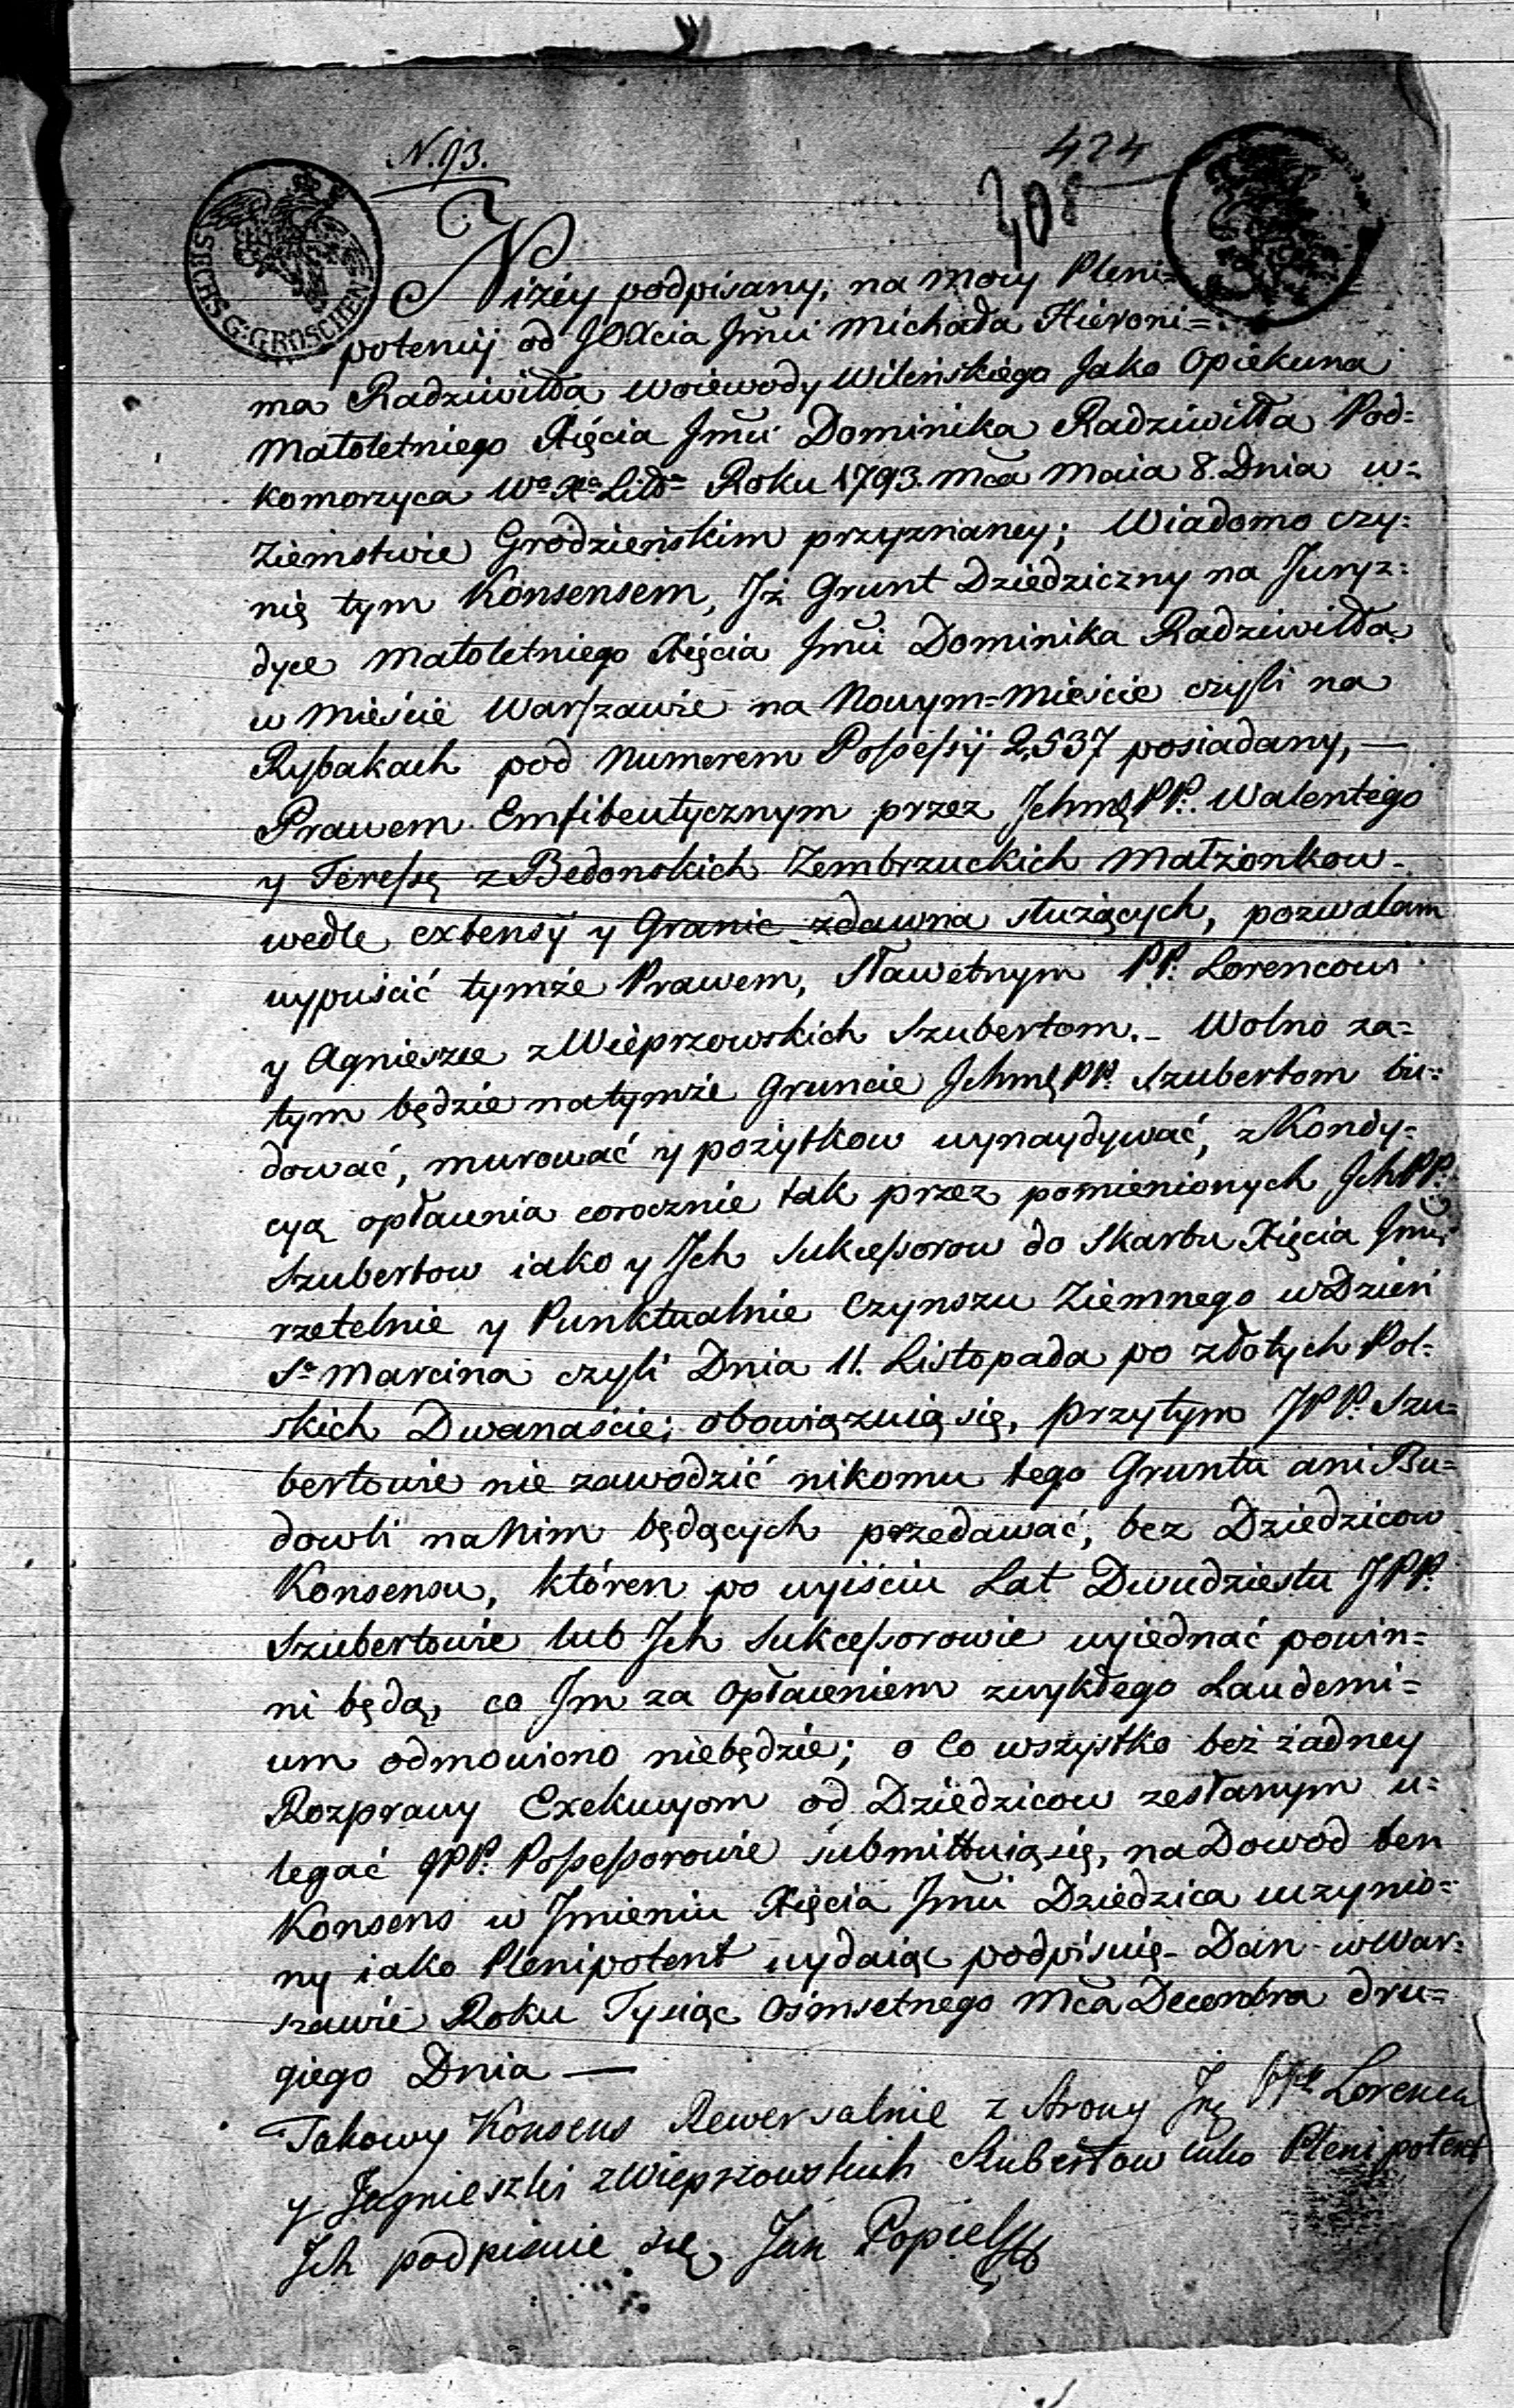 N. 93.
424
308
SECHS G: GROSCHEN
Niżéy podpisany, na mocy Pleni=
potencij od JOXcia Jmci Michała Hieroni=
ma Radziwiłła Woiewody Wileńskiego Jako Opiekuna
Małoletniego Xięcia Jmci Dominika Radziwiłła Pod=
komorzyca Wo Xa Litto Roku 1793. Mca Maia 8. Dnia w=
Ziemstwie Grodzieńskim przyznaney; Wiadomo czy=
nię tym Konsensem, Jż Grunt Dziedziczny na Juryz=
dyce Małoletniego Xięcia Jmci Dominika Radziwiłła
w Mieście Warszawie na Nowym=Mieście czyli na
Rybakach pod Numerem Possessij 2,537 posiadany, —
Prawem Emfiteutycznym przez Jchmę PP. Walentego
y Teressę z Bedonskich Zembrzuckich Małżonkow.
wedle extensij y Granic zdawna służących, pozwalam
wypuścić tymże Prawem, Sławetnym PP. Lorencowi
y Agnieszce z Wieprzowskich Szubertom. – Wolno za=
tym będzie na tymże Gruncie Jchmę PP. Szubertom bu=
dować, murować y pożytkow wynaydywać, z Kondy=
cyą opłacenia corocznie tak przez pomienionych Jch PP.
Szubertow iako y Jch Sukcessorow do Skarbu Xięcia Jmci
rzetelnie y Punktualnie Czynszu Ziemnego w Dzień
So Marcina czyli Dnia 11. Listopada po złotych Pol=
skich Dwanaście; obowiązuią się, przytym JPP. Szu=
bertowie nie zawodzić nikomu tego Gruntu ani Bu=
dowli na Nim będących przedawać, bez Dziedzicow
Konsensu, któren po wyiściu Lat Dwudziestu JPP.
Szubertowie lub Jch Sukcessorowie wyiednać powin=
ni będą, co Jm za opłaceniem zwykłego Laudemi=
um odmowiono niebędzie; o co wszystko bez żadney
Rozprawy Exekucyom od Dziedzicow zesłanym u=
legać JPP. Possessorowie submittuią się, na Dowod ten
Konsens w Jmieniu Xięcia Jmci Dziedzica uczynio=
ny iako Plenipotent wydaiąc podpisuię – Dan w War=
szawie Roku Tysiąc Osmsetnego Mca Decembra dru=
giego Dnia —
Takowy Konsens Rewersalnie z strony Lorenca
y Jagnieszki z Wiepszowskich Szubertow iako Plenipotent
Jch podpisuie się Jan Popiel